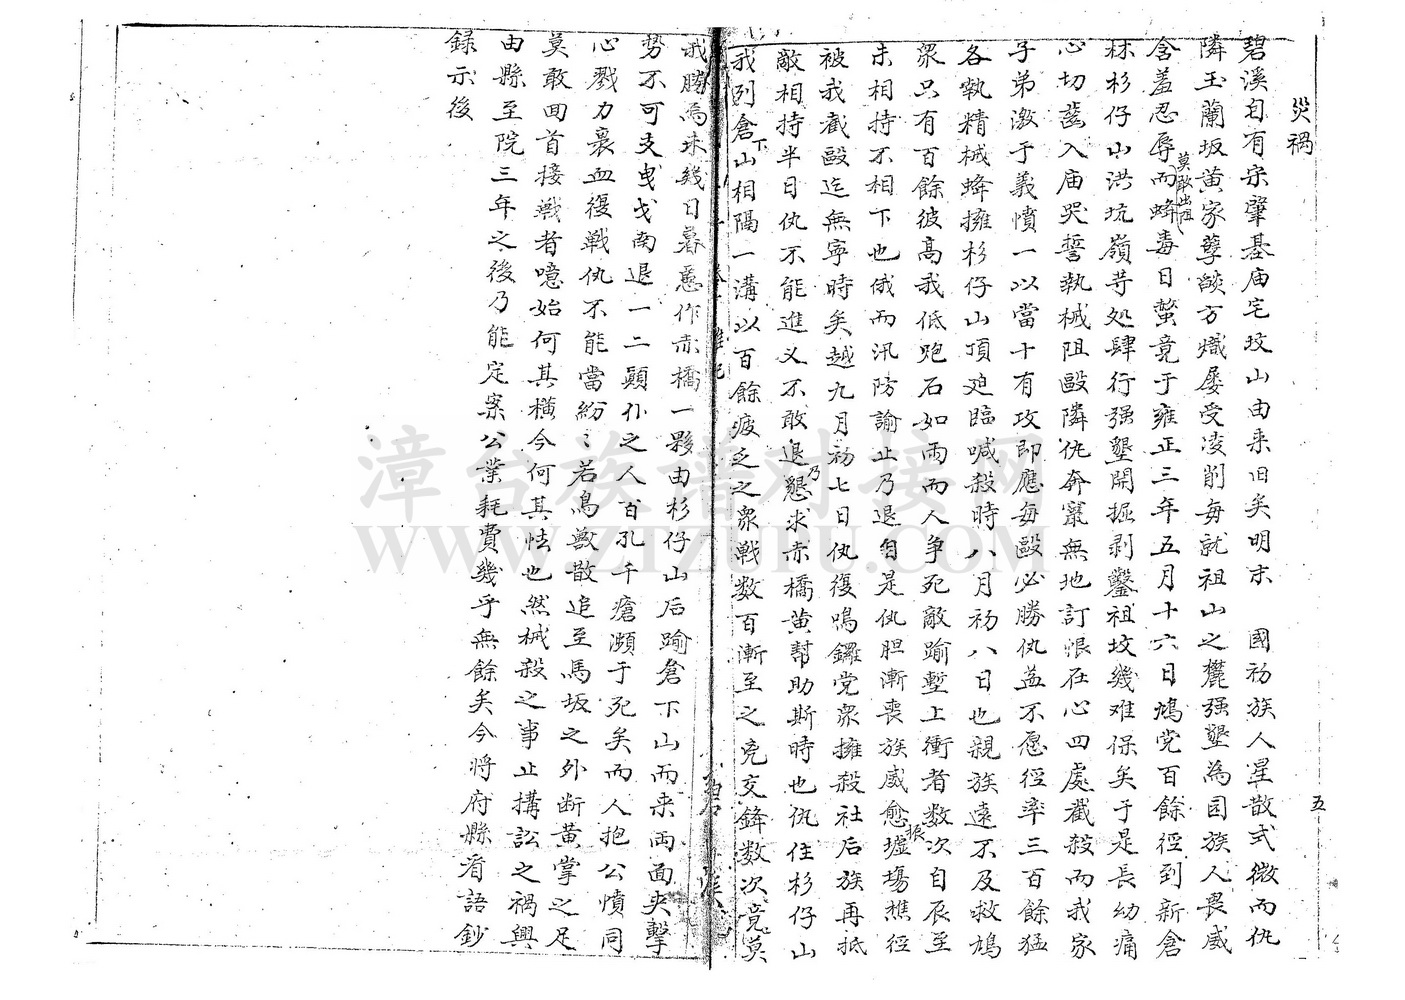 災禍
碧溪自有宋肇基庙宅坟山由来旧矣明末　國初族人星散式微而仇
隣玉蘭坂黄家孽燄方熾屡受凌削每就祖山之麓强墾為园族人畏威
含羞忍辱莫敢出阻而蜂毒日螫竟于雍正三年五月十六日鳩党百餘徑到新倉
杉仔山洪坑嶺苛处肆行强墾開掘剥鑿祖坟幾难保矣于是長幼痛
心切齒入庙哭誓執械阻毆隣仇奔竄無地訂恨在心四處截殺而我家
子弟激于義憤一以當十有攻即應每毆必勝仇益不愿徑率三百餘猛
各執精械蜂擁杉仔山頂迫臨喊殺時八月初八日也親族遠不及救鳩
衆只有百餘彼高我低炮石如雨而人争死敵踰塹上衝者数次自辰至
未相持不相下也俄而汛防諭止乃退自是仇胆漸喪族威愈振墟場樵徑
被我截毆迄無寧時矣越九月初七日仇復鳴鑼党衆擁殺社后族再抵
敵相持半日仇不能進又不敢退乃懇求赤橋黄幇助斯時也仇住杉仔山
我列倉下山相隔一溝以百餘疲乏之衆戰数百漸至之兇交鋒数次竟莫
我勝焉未幾日暮忽作赤橋一夥由杉仔山后踰倉下山而来両面夾擊
势不可支曳戈南退一二顛仆之人百孔千瘡瀕于死矣而人抱公憤同
心戮力裹血復戰仇不能當紛〻若鳥獸散追至馬坂之外断黄掌之足
莫敢回首接戦者噫始何其横今何其怯也然械殺之事止搆訟之禍興
由縣至院三年之後乃能定案公業耗費幾乎無餘矣今将府縣看語鈔
録示後
五
漳台族谱对接网
WWW.ZTZUPU.COM